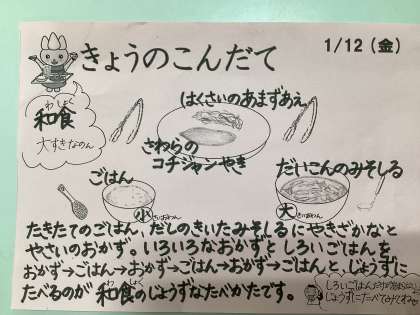 きょうのこんだて
1/12(金)
わしょく
和食
大すきなのん
はくさいのあまずあえ
さわらの
コチジャンやき
ごはん
小
だいこんのみそしる
大
たきたてのごはん、だしのきいたみそしるにやきざかなと
やさいのおかず。いろいろなおかずとしろいごはんを
おかず→ごはん→おかず→ごはん→おかず→ごはんと、じょうずに
わしょく
たべるのが和食のじょうずなたべかたです。
じょうずにたべてみてね